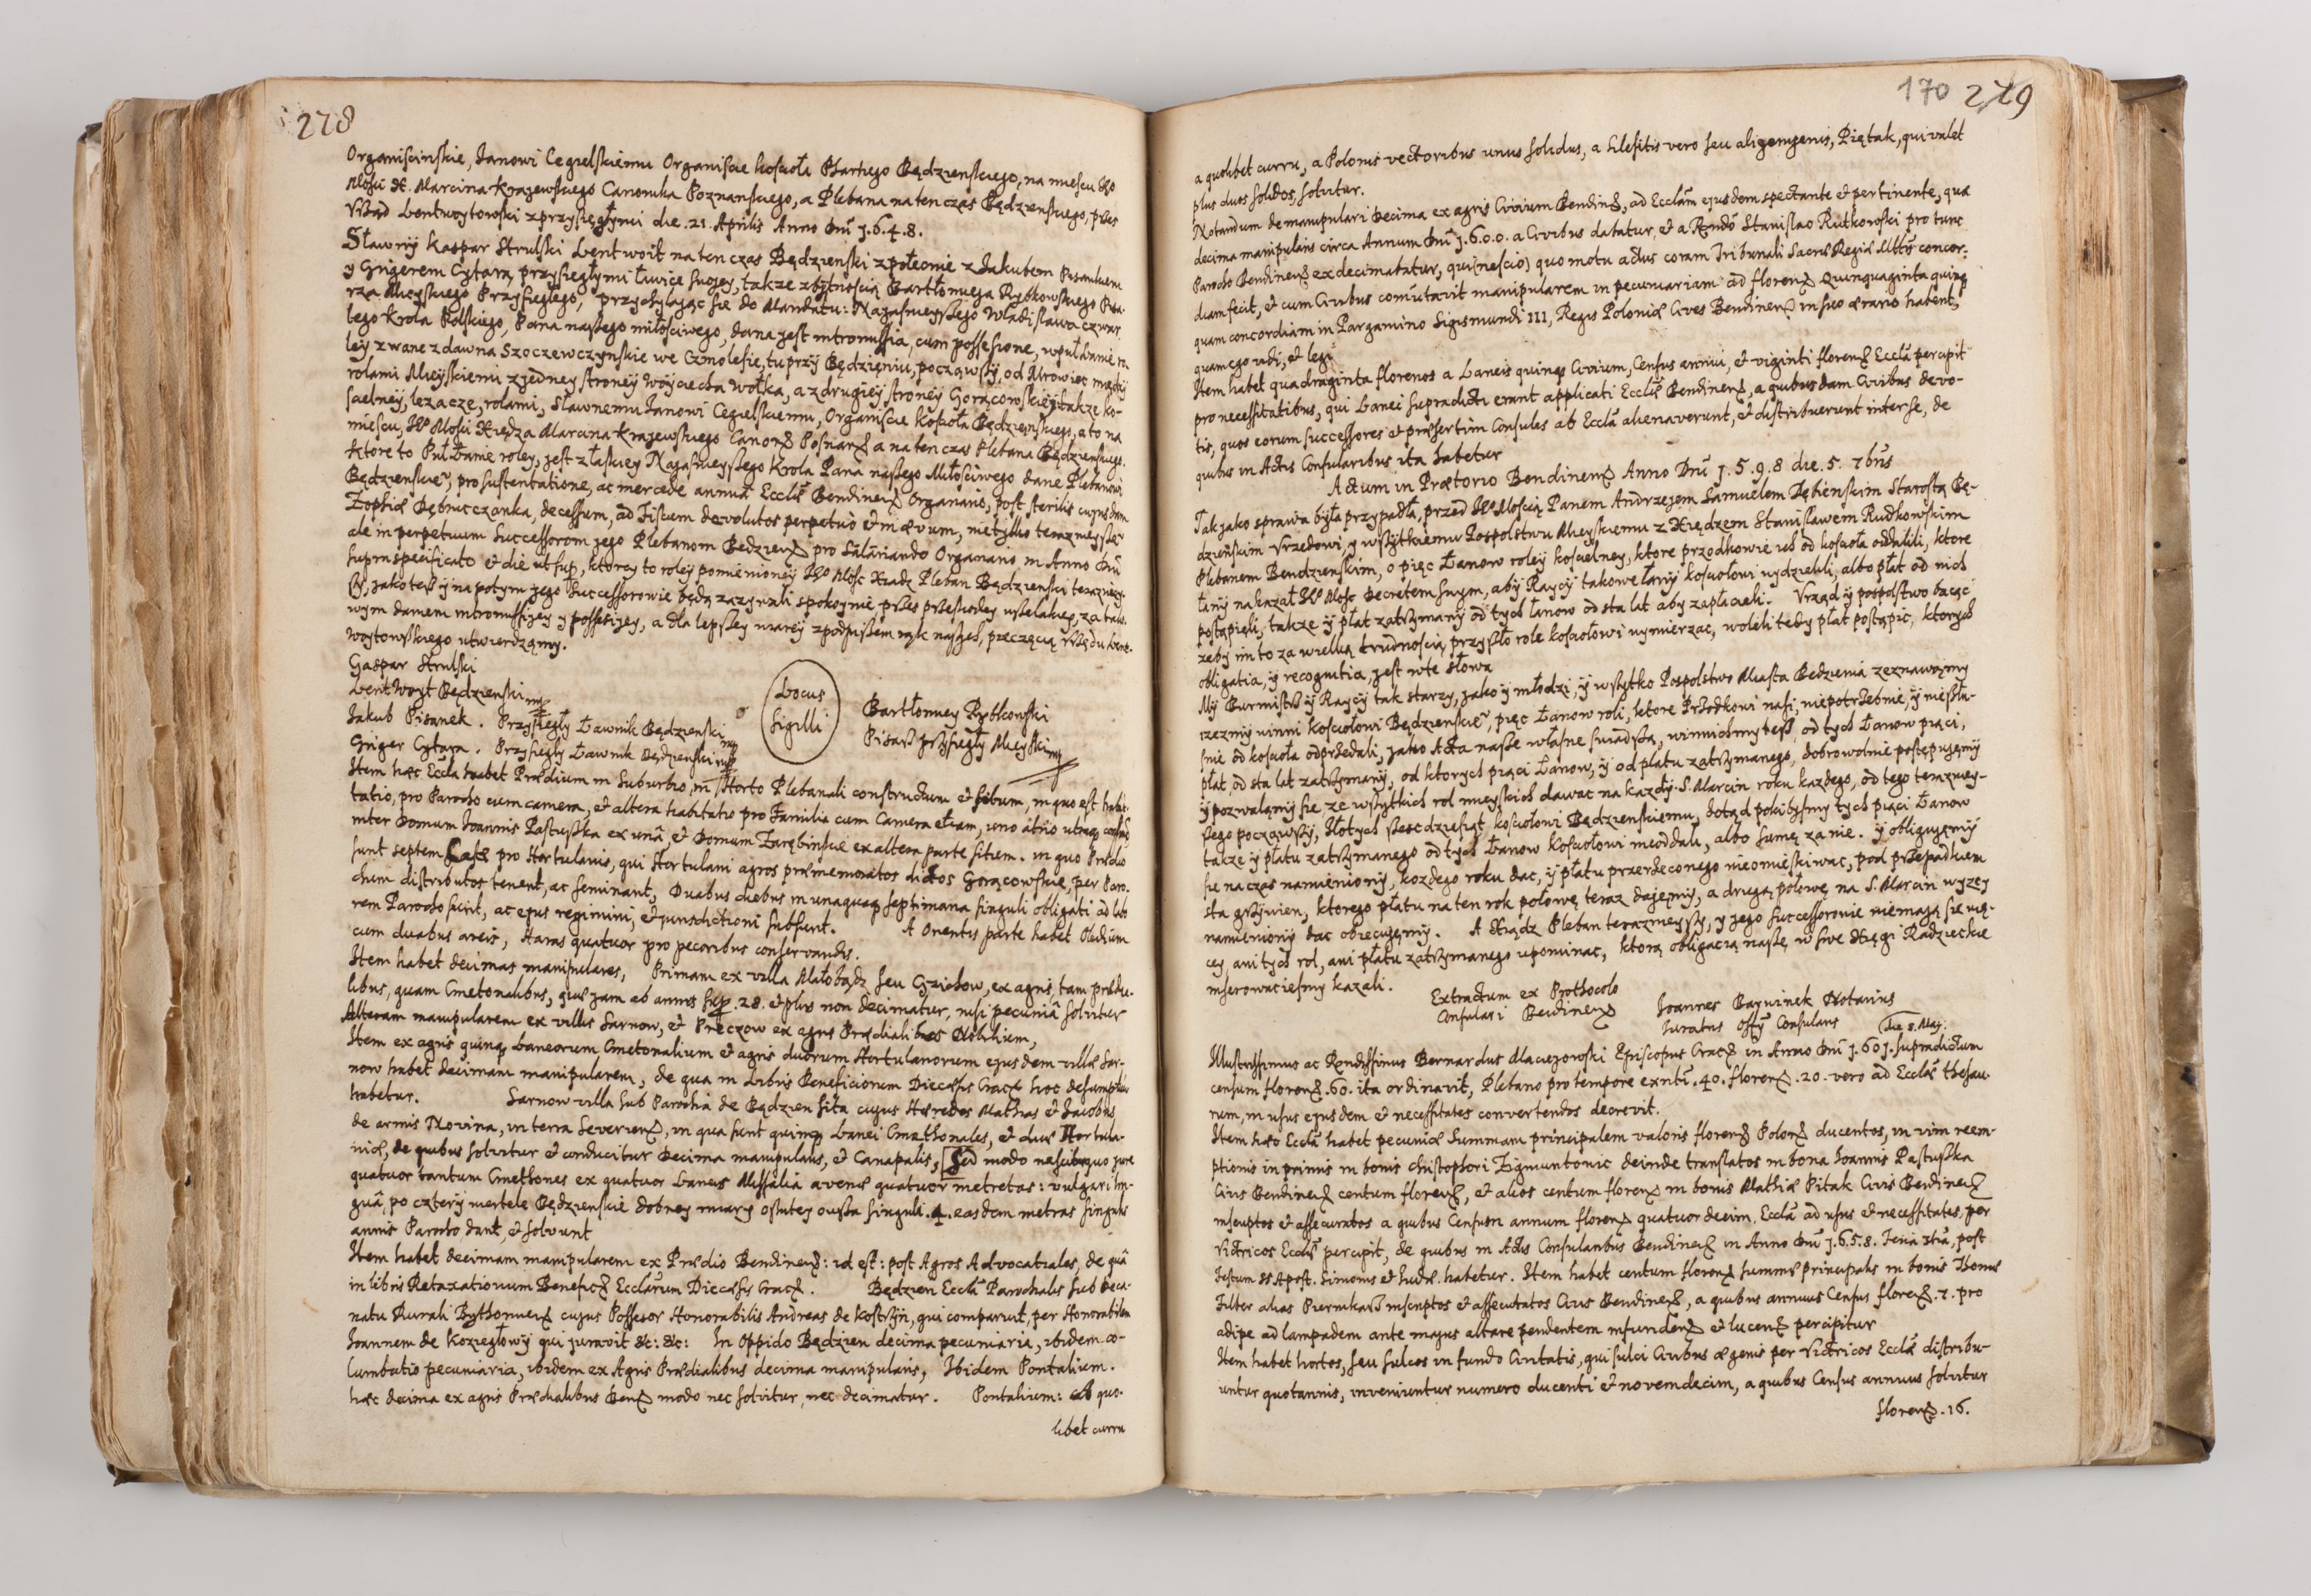 278
Organiscinskie, Janowi Cegielskiemu Organiscie kościoła Pharnego Będzienskiego, na miescu JHo
Mości X. Marcina Krajewskiego Canonika Poznanskiego, a Plebana na ten czas Będzienskiego, przes
Vrząd Lentwoytowski z przysięgłymi die .21. Aprilis Anno Dnī 1.6.4.8.
Sławny Kaspar Strulski Lentwoit na ten czas Będzienski z połecnie z Jakubem Pisankiem
y Grigerem Cytarą, przysięgłymi ławice swojey, takze z bytnoscią Bartłomieja Rybkowskiego Pisa-
rza Mieyskiego Przysięgłego, przychylając się do Mandatu: Najasnieyszego Władisława czwar-
tego Krola Polskiego, Pana naszego miłosciwego, dana jest intromissia, cum possesione, w puł łanie ro-
ley zwane z dawna Szoczewczynskie we Czmolesie, tu przy Będzięniu, począwszy od Mrowiec między
rolami Mieyskiemi z jedney stroney Woyciecha Wołka, a z drugiey stroney Gorącowskiey takze ko-
scielney, lezacze, rolami, Sławnemu Janowi Cegielskiemu, Organiscie kościoła Będzięnskiego, a to na
miescu, JHo Mości Xiędza Marcina Krajewskiego Canon Posnan a na ten czas Plebana Będzienskiego.
ktore to Puł Łanie roley, jest z łaskiey Najasnieyszego Krola Pana naszego Miłosciwego dane Plebanowi
Będzienskie, pro sustentatione, ac mercede annua Ecclæ Bendinen Organario, post sterilis cujusdam
Zophiæ Dębniczanka, decessum, ad Fiscum devolutos perpetuò et in ævum, nie tylko terazneysze
ale in perpetuum Successorom jego Plebanom Bedzien pro Salariando Organario in Anno Dnī
supra specificato et die ut sup, ktorey to roley pomienioney JHo Mosc Xiadz Pleban Będzienski teraznieÿ-
szy, jako tesz y na potym jego Successorowie będą zazywali spokoynie przes przeskodey wszelakiey, za tako-
wym danem intromissijey y possesijey, a dla lepszey wiarey z podpissem rąk naszych, pieczęcią Vrzędu Lent-
woytowskiego utwierdzamy.
Gaspar Strulski
Lentwoyt Będzienski mp
Jakub Pisanek. Przysięgły Ławnik Będzienski mp
Griger Cytara. Przysięgły Ławnik Będzienski mp
Locus
Sigilli
Bartłomiey Rybkowski
Pisarz przysięgły Mieyski mp
Item hæc Eccla habet Prædium in Suburbio, in Horto Plebanali constructum et situm, in quo est habi-
tatio, pro Parocho cum camera, et altera habitatio pro Familia cum Camera etiam, uno atrio utraq
inter Domum Joannis Pastuszka ex unâ, et Domum Zarębinskie ex altera parte situm. in quo Prædio
sunt septem Casæ pro Hortulanis, qui Hortulani agros præmemoratos dictos Gorącowskie, per Paro-
chum distributos tenent, ac seminant, Duabus diebus in unaquaq septimana singuli obligati ad labo-
rem Parocho sunt, ac ejus regimini, et jurisdictioni subsunt. A Orientis parte habet Prædium
cum duabus areis, Haras quatuor pro pecoribus conservandis.
Item habet decimas manipulares, Primam ex villa Małobądz seu Gzichow, ex agris tam prædia-
libus, quam Cmetonalibus, quæ jam ab annis sup .28. et plus non decimatur, nisi pecuniâ solvitur
Alteram manipularem ex villis Sarnow, et Preczow ex agris Prædialibus Nobilium,
Item ex agris quinq Laneorum Cmetonalium et agris duorum Hortulanorum ejusdem villæ Sar-
now habet decimam manipularem, de qua in Libris Beneficiorum Diecæsis Crac hoc desumptum
habetur. Sarnow villa sub Parochia de Będzien sita cujus Hæredes Mathias et Jacobus
de armis Novina, in terra Severien, in qua sunt quinq Lanei Cmethonales, et duæ Hortula-
niæ, de quibus solvitur et conducitur Decima manipularis, et Canapalis, Sed modo nescitur quo jure
quatuor tantum Cmethones ex quatuor Laneis Missalia avenæ quatuor metretas: vulgari lin-
guâ, po cztery wertele Będzienskie dobrey miary osutey owsa singuli .4. easdem metras singulis
annis Parocho dant, et solvunt
Item habet decimam manipularem ex Prædio Bendinen: id est: post Agros Advocatiales, de quâ
in libris Retaxationum Benefic Ecclārum Diecæsis Crac. Będzien Eccla Parochialis sub Deca-
natu Rurali Bythomien cujus Possesor Honorabilis Andreas de Kostrÿn, qui comparuit, per Honorabilem
Joannem de Koziegłowÿ qui juravit &c: &c: In Oppido Będzien decima pecuniaria, ibidem co-
lumbatio pecuniaria, ibidem ex Agris Prædialibus decima manipularis, Ibidem Pontalium.
hæc decima ex agris Prædialibus Ben modo nec solvitur, nec decimatur. Pontalium: ab quo-
libet curru
170 279
a quolibet curru, a Polonis vectoribus unus solidus, a Silesitis vero seu aligenigenis, Piętak, qui valet
plus duos solidos, solvitur.
Notandum de manipulari Decima ex agris Civium Bendin, ad Ecclām ejusdem spectante et pertinente, quæ
decima manipularis circa Annum Dnī 1.6.0.0. a Civibus dabatur, et a Rndo Stanislao Rutkowski pro tunc
Parocho Bendinen exdecimabatur, qui (nescio) quo motu actus coram Tribunali Sacræ Regiæ Mttis concor-
diam fecit, et cum Civibus comutavit manipularem in pecuniariam ad floren Quinquaginta quinq
quam concordiam in Pargamino Sigismundi III, Regis Poloniæ Cives Bendinen in suo ærario habent,
quam ego vidi, et legi
Item habet quadraginta florenos a Laneis quinq Civium, Census annui, et viginti floren Eccla percipit
pro necessitatibus, qui Lanei supradicti erant applicati Ecclæ Bendinen, a quibusdam Civibus devo-
tis, quos eorum successores et præsertim Consules ab Eccla alienaverunt, et distribuerunt inter se, de
quibus in Actis Consularibus ita habetur
Actum in Prætorio Bendinen Anno Dnī 1.5.9.8 die .5. 7bris
Tak jako sprawa była przypadła, przed JHo Mością Panem Andrzejem Samuelem Dębienskim Starostą Bę-
dzienskim Vrzedowi, y wszytkiemu Pospolstwu Mieyskiemu z Xiędzem Stanisławem Rudkowskim
Plebanem Bendzienskim, o pięc Łanow roley kościelney, ktore przodkowie ich od kościoła oddalili, ktore
łany nakazał JHo Mosc Decretem swym, aby Raycy takowe łany kościołowi wydzielili, albo płat od nich
postąpieli, takze y płat zatrzymany od tych łanow od sta lat aby zapłacieli. Vrząd y pospolstwo bacząc
zeby im to za wielką trudnoscią przyszło role kościołowi wymierzac, woleli tedy płat postąpic, ktorych
obligatia, y recognitia, jest w te słowa
My Burmistrz y Raycy tak starzy, jako y młodzi, y wszytko Pospolstwo Miasta Bedzienia zeznawamy
izezmy winni kościołowi Będzienskie, pięc Łanow roli, ktore Przodkowi nasi, niepotrzebnie, y niesłu-
snie od kościoła odprzedali, jako Acta nasze własne swiadszą, winnichmy tesz od tych Łanow piąci,
płat, od sta lat zatrzymany, od ktorych piąci Łanow, y od płatu zatrzymanego, dobrowolnie postępujemy
y pozwalamy sie ze wszytkich rol mieyskich dawac na kazdy S. Marcin roku kazdego, od tego terazniey-
szego począwszy, złotych szescdziesiąt kościołowi Będzienskiemu, dotąd pokibysmy tych piąci Łanow
takze y płatu zatrzymanego od tych Łanow kościołowi nieoddali, albo sumę za nie. y obligujemy
sie na czas namieniony, kozdego roku dac, y płatu przerzeconego nieomieskiwac, pod przepadkiem
sta grzywien, ktorego płatu na ten rok połowę teraz dajemy, a drugą połowę na S. Marcin wyzey
namieniony dac obiecujemy. A Xiądz Pleban teraznieyszy, y jego successorowie niemają się wię-
cey, ani tych rol, ani płatu zatrzymanego upominac, ktorą obligacią naszę w swe Xięgi Radzieckie
inserowaciesmy kazali.
Extractum ex Prothocolo
Consulari Bendinen
Joannes Baywinek Notarius
Juratus Offÿ Consularis
die 8. May:
Illustrissimus ac Rendissimus Bernardus Maciejowski Episcopus Crac in Anno Dnī 1.601. supradictum
censum floren .60. ita ordinavit, Plebano pro tempore exnti .40. floren .20. vero ad Ecclæ thesau-
rum, in usus ejusdem et necessitates convertendos decrevit.
Item hæc Eccla habet pecuniæ summam principalem valoris floren Polon ducentos, in vim reem-
ptionis inprimis in bonis Christophori Zigmuntowic deinde translatos in bona Joannis Pastuszka
Civis Bendinen centum floren, et alios centum floren in bonis Mathiæ Pitak Civis Bendinen
inscriptos et assecuratos a quibus Censum annum floren quatuordecim, Eccla ad usus et necessitates, per
Victricos Ecclæ percipit, de quibus in Actis Consularibus Bendinen in Anno Dnī 1.6.5.8. Feria 3tia, post
Festum SS Apost. Simonis et Judæ. habetur. Item habet centum floren summæ principalis in bonis Thomæ
Filter alias Piernikarz inscriptos et assecutatos Civis Bendinen, a quibus annuus Census floren .7. pro
adipe ad lampadem ante majus altare pendentem infunden et lucen percipitur
Item habet hortos, seu sulcos in fundo Civitatis, qui sulci Civibus ægenis per Victricos Ecclæ distribu-
untur quotannis, inveniuntur numero ducenti et novemdecim, a quibus Census annuus solvitur
floren .16.